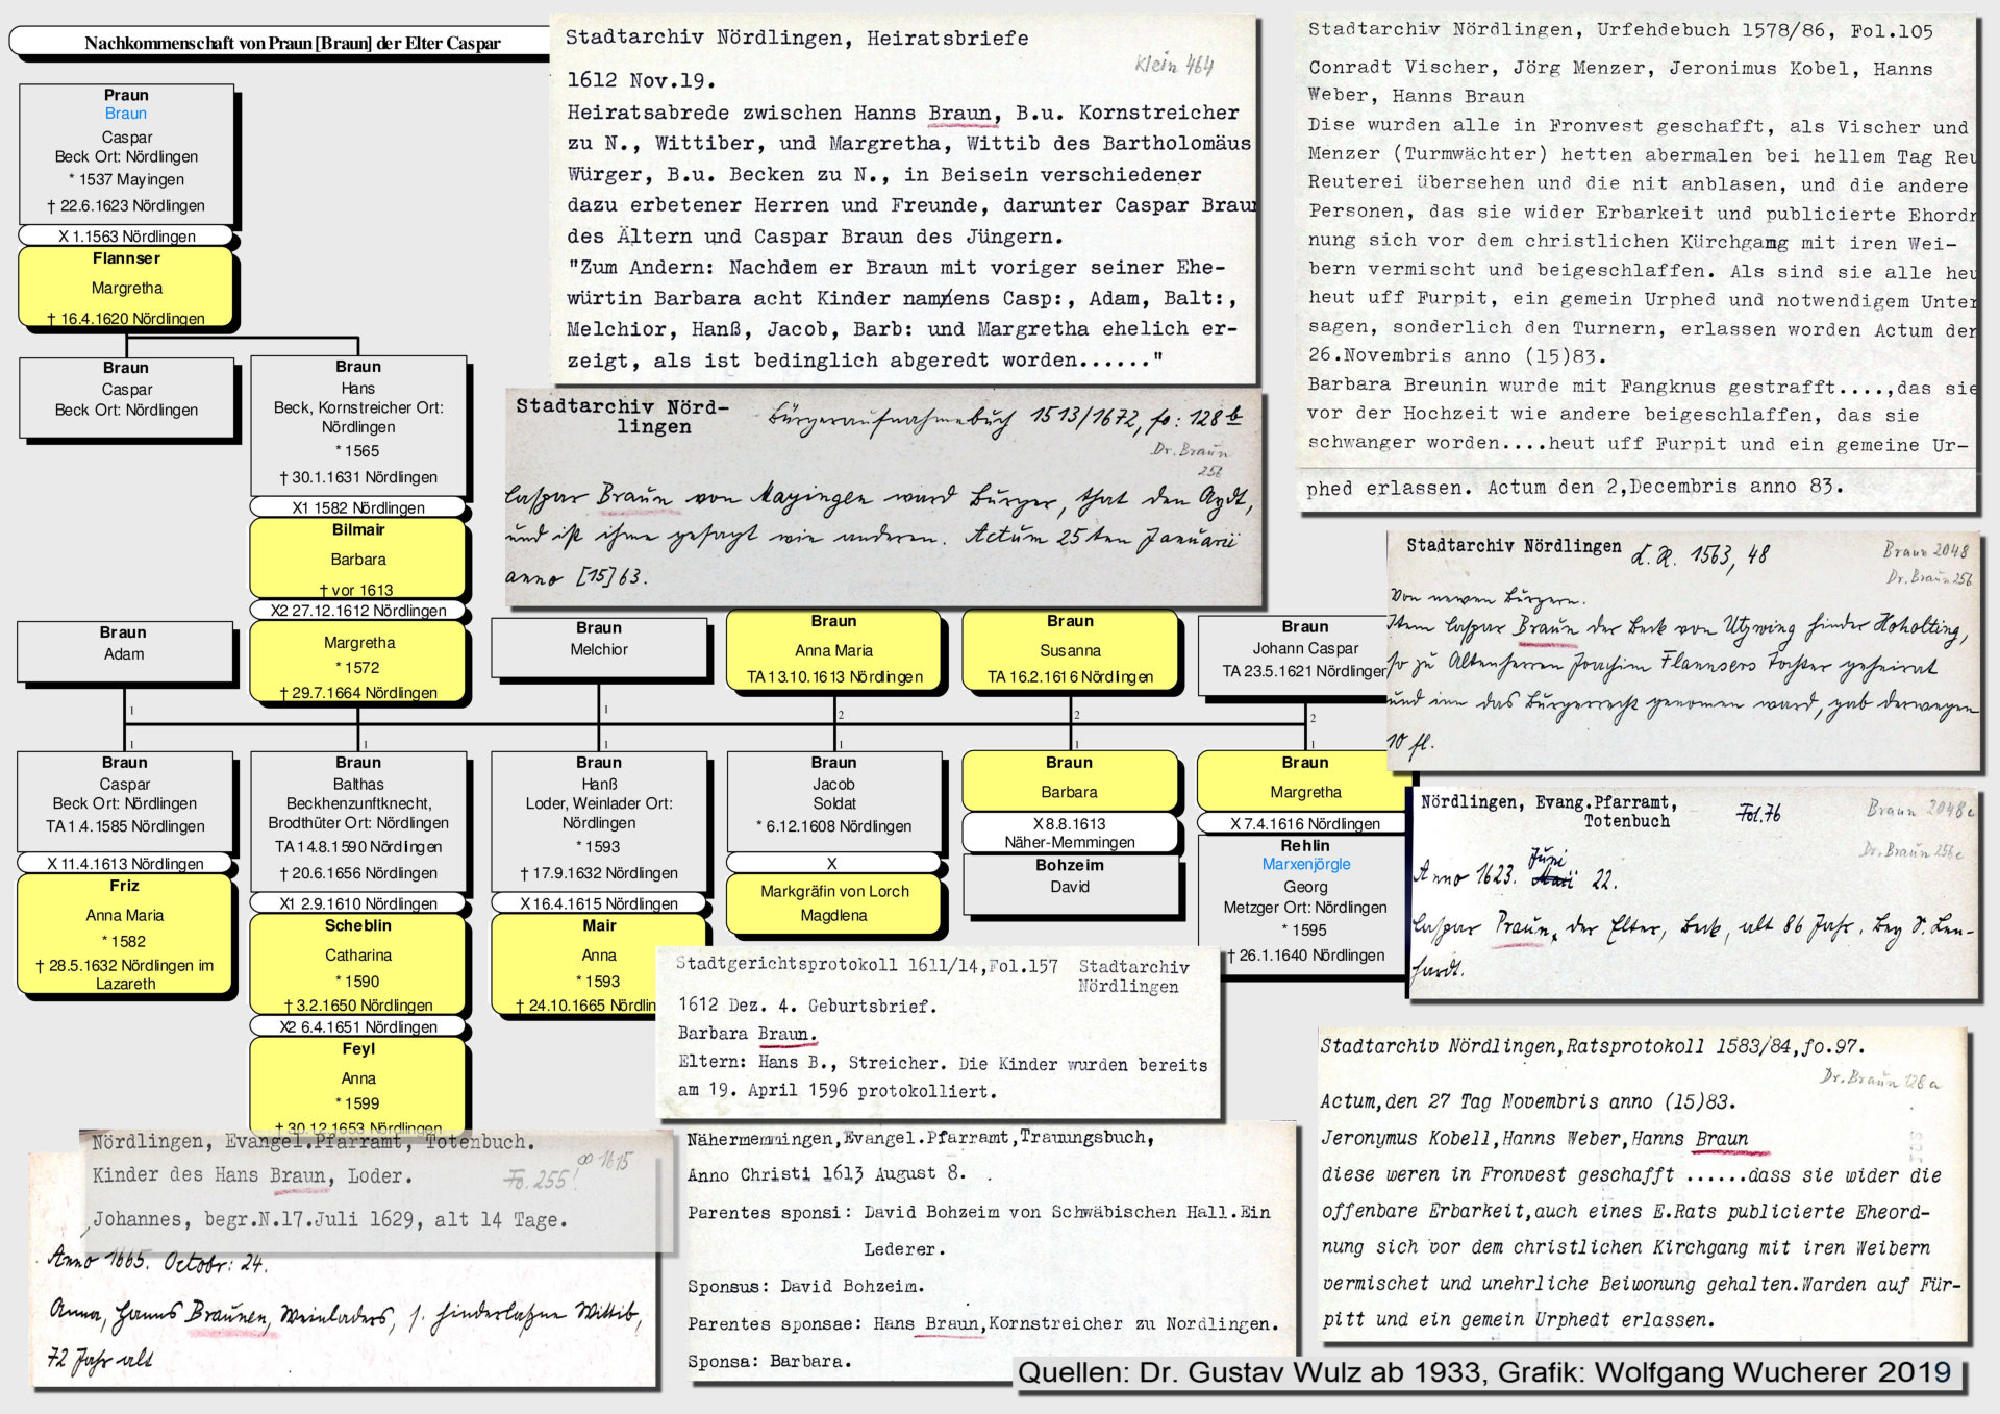 Nachkommenschaft von Praun [Braun] der Elter Caspar
Praun
Braun
Caspar
Beck Ort: Nördlingen
* 1537 Mayingen
† 22.6.1623 Nördlingen
X 1.1563 Nördlingen
Flannser
Margretha
† 16.4.1620 Nördlingen
Braun
Caspar
Beck Ort: Nördlingen
Braun
Hans
Beck, Kornstreicher Ort:
Nördlingen
* 1565
† 30.1.1631 Nördlingen
X1 1582 Nördlingen
Bilmair
Barbara
† vor 1613
X2 27.12.1612 Nördlingen
Margretha
* 1572
† 29.7.1664 Nördlingen
Braun
Adam
Braun
Melchior
Braun
Anna Maria
TA 13.10.1613 Nördlingen
Braun
Susanna
TA 16.2.1616 Nördlingen
Braun
Johann Caspar
TA 23.5.1621 Nördlingen
1
1
2
2
2
1
1
1
1
1
1
Braun
Caspar
Beck Ort: Nördlingen
TA 1.4.1585 Nördlingen
X 11.4.1613 Nördlingen
Friz
Anna Maria
* 1582
† 28.5.1632 Nördlingen im
Lazareth
Braun
Balthas
Beckhenzunftknecht,
Brodthüter Ort: Nördlingen
TA 14.8.1590 Nördlingen
† 20.6.1656 Nördlingen
X1 2.9.1610 Nördlingen
Scheblin
Catharina
* 1590
† 3.2.1650 Nördlingen
X2 6.4.1651 Nördlingen
Feyl
Anna
* 1599
† 30.12.1653 Nördlingen
Braun
Hanß
Loder, Weinlader Ort:
Nördlingen
* 1593
† 17.9.1632 Nördlingen
X 16.4.1615 Nördlingen
Mair
Anna
* 1593
† 24.10.1665 Nördlin
Braun
Jacob
Soldat
* 6.12.1608 Nördlingen
X
Markgräfin von Lorch
Magdlena
Braun
Barbara
X 8.8.1613
Näher-Memmingen
Bohzeim
David
Braun
Margretha
X 7.4.1616 Nördlingen
Rehlin
Marxenjörgle
Georg
Metzger Ort: Nördlingen
* 1595
† 26.1.1640 Nördlingen
Stadtarchiv Nördlingen, Heiratsbriefe
Klein 464
1612 Nov.19.
Heiratsabrede zwischen Hanns Braun, B.u. Kornstreicher
zu N., Wittiber, und Margretha, Wittib des Bartholomäus
Würger, B.u. Becken zu N., in Beisein verschiedener
dazu erbetener Herren und Freunde, darunter Caspar Braun
des Ältern und Caspar Braun des Jüngern.
"Zum Andern: Nachdem er Braun mit voriger seiner Ehe-
würtin Barbara acht Kinder namens Casp:, Adam, Balt:,
Melchior, Hanß, Jacob, Barb: und Margretha ehelich er-
zeigt, als ist bedinglich abgeredt worden......"
Stadtarchiv Nörd-
lingen
Bürgeraufnahmebuch 1513/1672, fo: 128 b
Dr. Braun
256
Caspar Braun von Mayingen ward Burger, that den Aydt,
und ist ihme gesagt wie anderen. Actum 25ten Januarii
anno [15]63.
Stadtarchiv Nördlingen, Urfehdebuch 1578/86, Fol.105
Conradt Vischer, Jörg Menzer, Jeronimus Kobel, Hanns
Weber, Hanns Braun
Dise wurden alle in Fronvest geschafft, als Vischer und
Menzer (Turmwächter) hetten abermalen bei hellem Tag Reu
Reuterei übersehen und die nit anblasen, und die andere
Personen, das sie wider Erbarkeit und publicierte Ehordn
nung sich vor dem christlichen Kürchgamg mit iren Wei-
bern vermischt und beigeschlaffen. Als sind sie alle heu
heut uff Furpit, ein gemein Urphed und notwendigem Unter
sagen, sonderlich den Turnern, erlassen worden Actum den
26.Novembris anno (15)83.
Barbara Breunin wurde mit Fangknus gestrafft....,das sie
vor der Hochzeit wie andere beigeschlaffen, das sie
schwanger worden....heut uff Furpit und ein gemeine Ur-
phed erlassen. Actum den 2,Decembris anno 83.
Stadtarchiv Nördlingen
d. R. 1563, 48
Braun 2048
Dr. Braun 256
Von newen Burgern.
Item Caspar Braun der Beck von Utzwing hinder Hoholting,
so zu Altenherren Joachim Flannsers Tochter geheirat
und inn das Burgerrecht genomen ward, gab derwegen
10 fl.
Nördlingen, Evang.Pfarramt,
Totenbuch
Fol.76
Braun 2048c
Dr. Braun 256c
Juni
Anno 1623. Maii 22.
Caspar Praun, der Elter, Beck, alt 86 Jahr. bey S. Leon-
hardt.
Stadtgerichtsprotokoll 1611/14,Fol.157
Stadtarchiv
Nördlingen
1612 Dez. 4. Geburtsbrief.
Barbara Braun.
Eltern: Hans B., Streicher. Die Kinder wurden bereits
am 19. April 1596 protokolliert.
Stadtarchiv Nördlingen,Ratsprotokoll 1583/84,fo.97.
Dr. Braun 128a
Actum,den 27 Tag Novembris anno (15)83.
Jeronymus Kobell,Hanns Weber,Hanns Braun
diese weren in Fronvest geschafft ......dass sie wider die
offenbare Erbarkeit,auch eines E.Rats publicierte Eheord-
nung sich vor dem christlichen Kirchgang mit iren Weibern
vermischet und unehrliche Beiwonung gehalten.Warden auf Für-
pitt und ein gemein Urphedt erlassen.
Nördlingen, Evangel.Pfarramt, Totenbuch.
Kinder des Hans Braun, Loder.
Fo. 255!
∞ 1615
Johannes, begr.N.17.Juli 1629, alt 14 Tage.
Anno 1665. Octobr: 24.
Anna, Hanns Braunen, Weinladers, s. hinderlaßne Wittib,
72 Jahr alt
Nähermemmingen,Evangel.Pfarramt,Trauungsbuch,
Anno Christi 1613 August 8.
Parentes sponsi: David Bohzeim von Schwäbischen Hall.Ein
Lederer.
Sponsus: David Bohzeim.
Parentes sponsae: Hans Braun,Kornstreicher zu Nordlingen.
Sponsa: Barbara.
Quellen: Dr. Gustav Wulz ab 1933, Grafik: Wolfgang Wucherer 2019